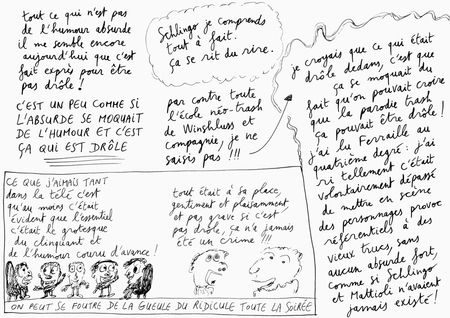 tout ce qui n'est pas
de l'humour absurde
il me semble encore
aujourd'hui que c'est
fait exprès pour être
pas drôle !
C'EST UN PEU COMME SI
L'ABSURDE SE MOQUAIT
DE L'HUMOUR ET C'EST
ÇA QUI EST DRÔLE
Schlingo je comprends
tout à fait.
ça se rit du rire.
par contre toute
l'école néo-trash
de Winshluss et
compagnie, je ne
saisis pas !!!
je croyais que ce qui était
drôle dedans, c'est que
ça se moquait du
fait qu'on pouvait croire
que la parodie trash
ça pouvait être drôle !
j'ai lu Ferraille au
quatrième degré : j'ai
ri tellement c'était
volontairement dépassé
de mettre en scène
des personnages provoc
référentiels à des
vieux trucs, sans
aucun absurde fort,
comme si Schlingo
et Mattioli n'avaient
jamais existé !
CE QUE J'AIMAIS TANT
dans la télé c'est
qu'au moins c'était
évident que l'essentiel
c'était le grotesque
du clinquant et
de l'humour couru d'avance !
tout était à sa place,
gentiment et plaisamment
et pas grave si c'est
pas drôle, ça n'a jamais
été un crime !!!
ON PEUT SE FOUTRE DE LA GUEULE DU RIDICULE TOUTE LA SOIRÉE